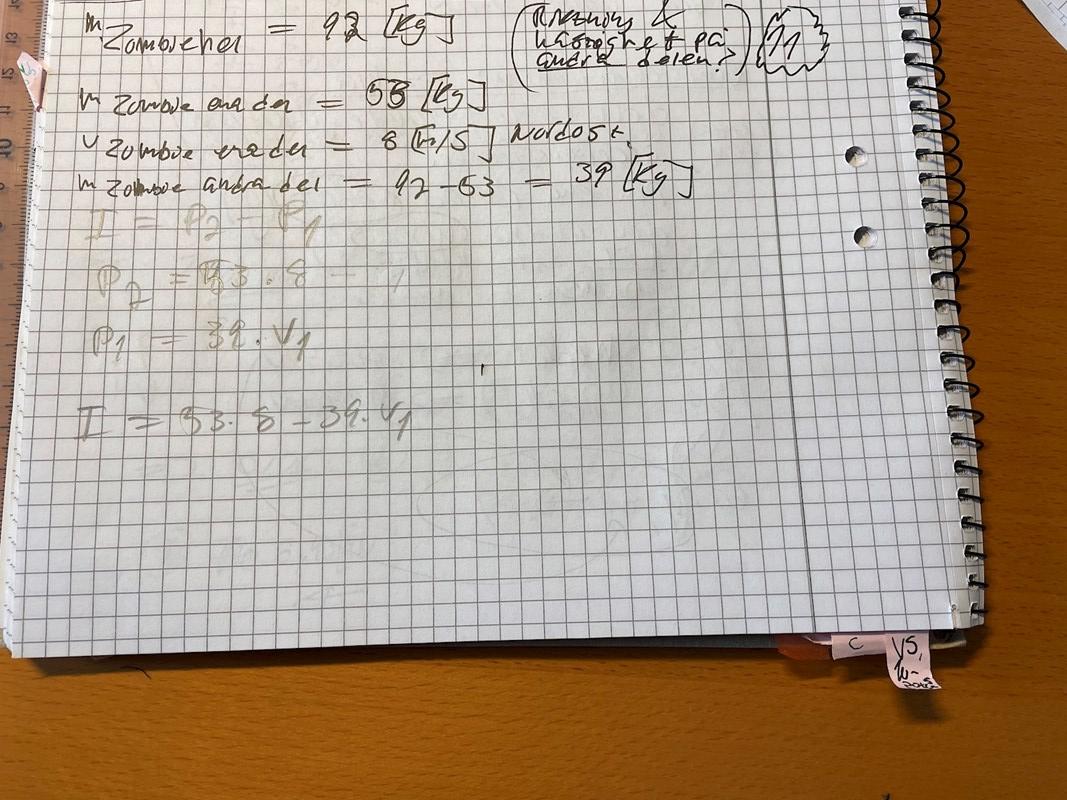 m Zombie hel = 92 [Kg] (Riktning & hastighet på andra delen?) 11
m Zombie ena del = 53 [Kg]
v Zombie ena del = 8 [m/s] Nordost
m Zombie andra del = 92 - 53 = 39 [Kg]
I = P2 - P1
P2 = 53 . 8
P1 = 39 . V1
I = 53 . 8 - 39 . V1
C